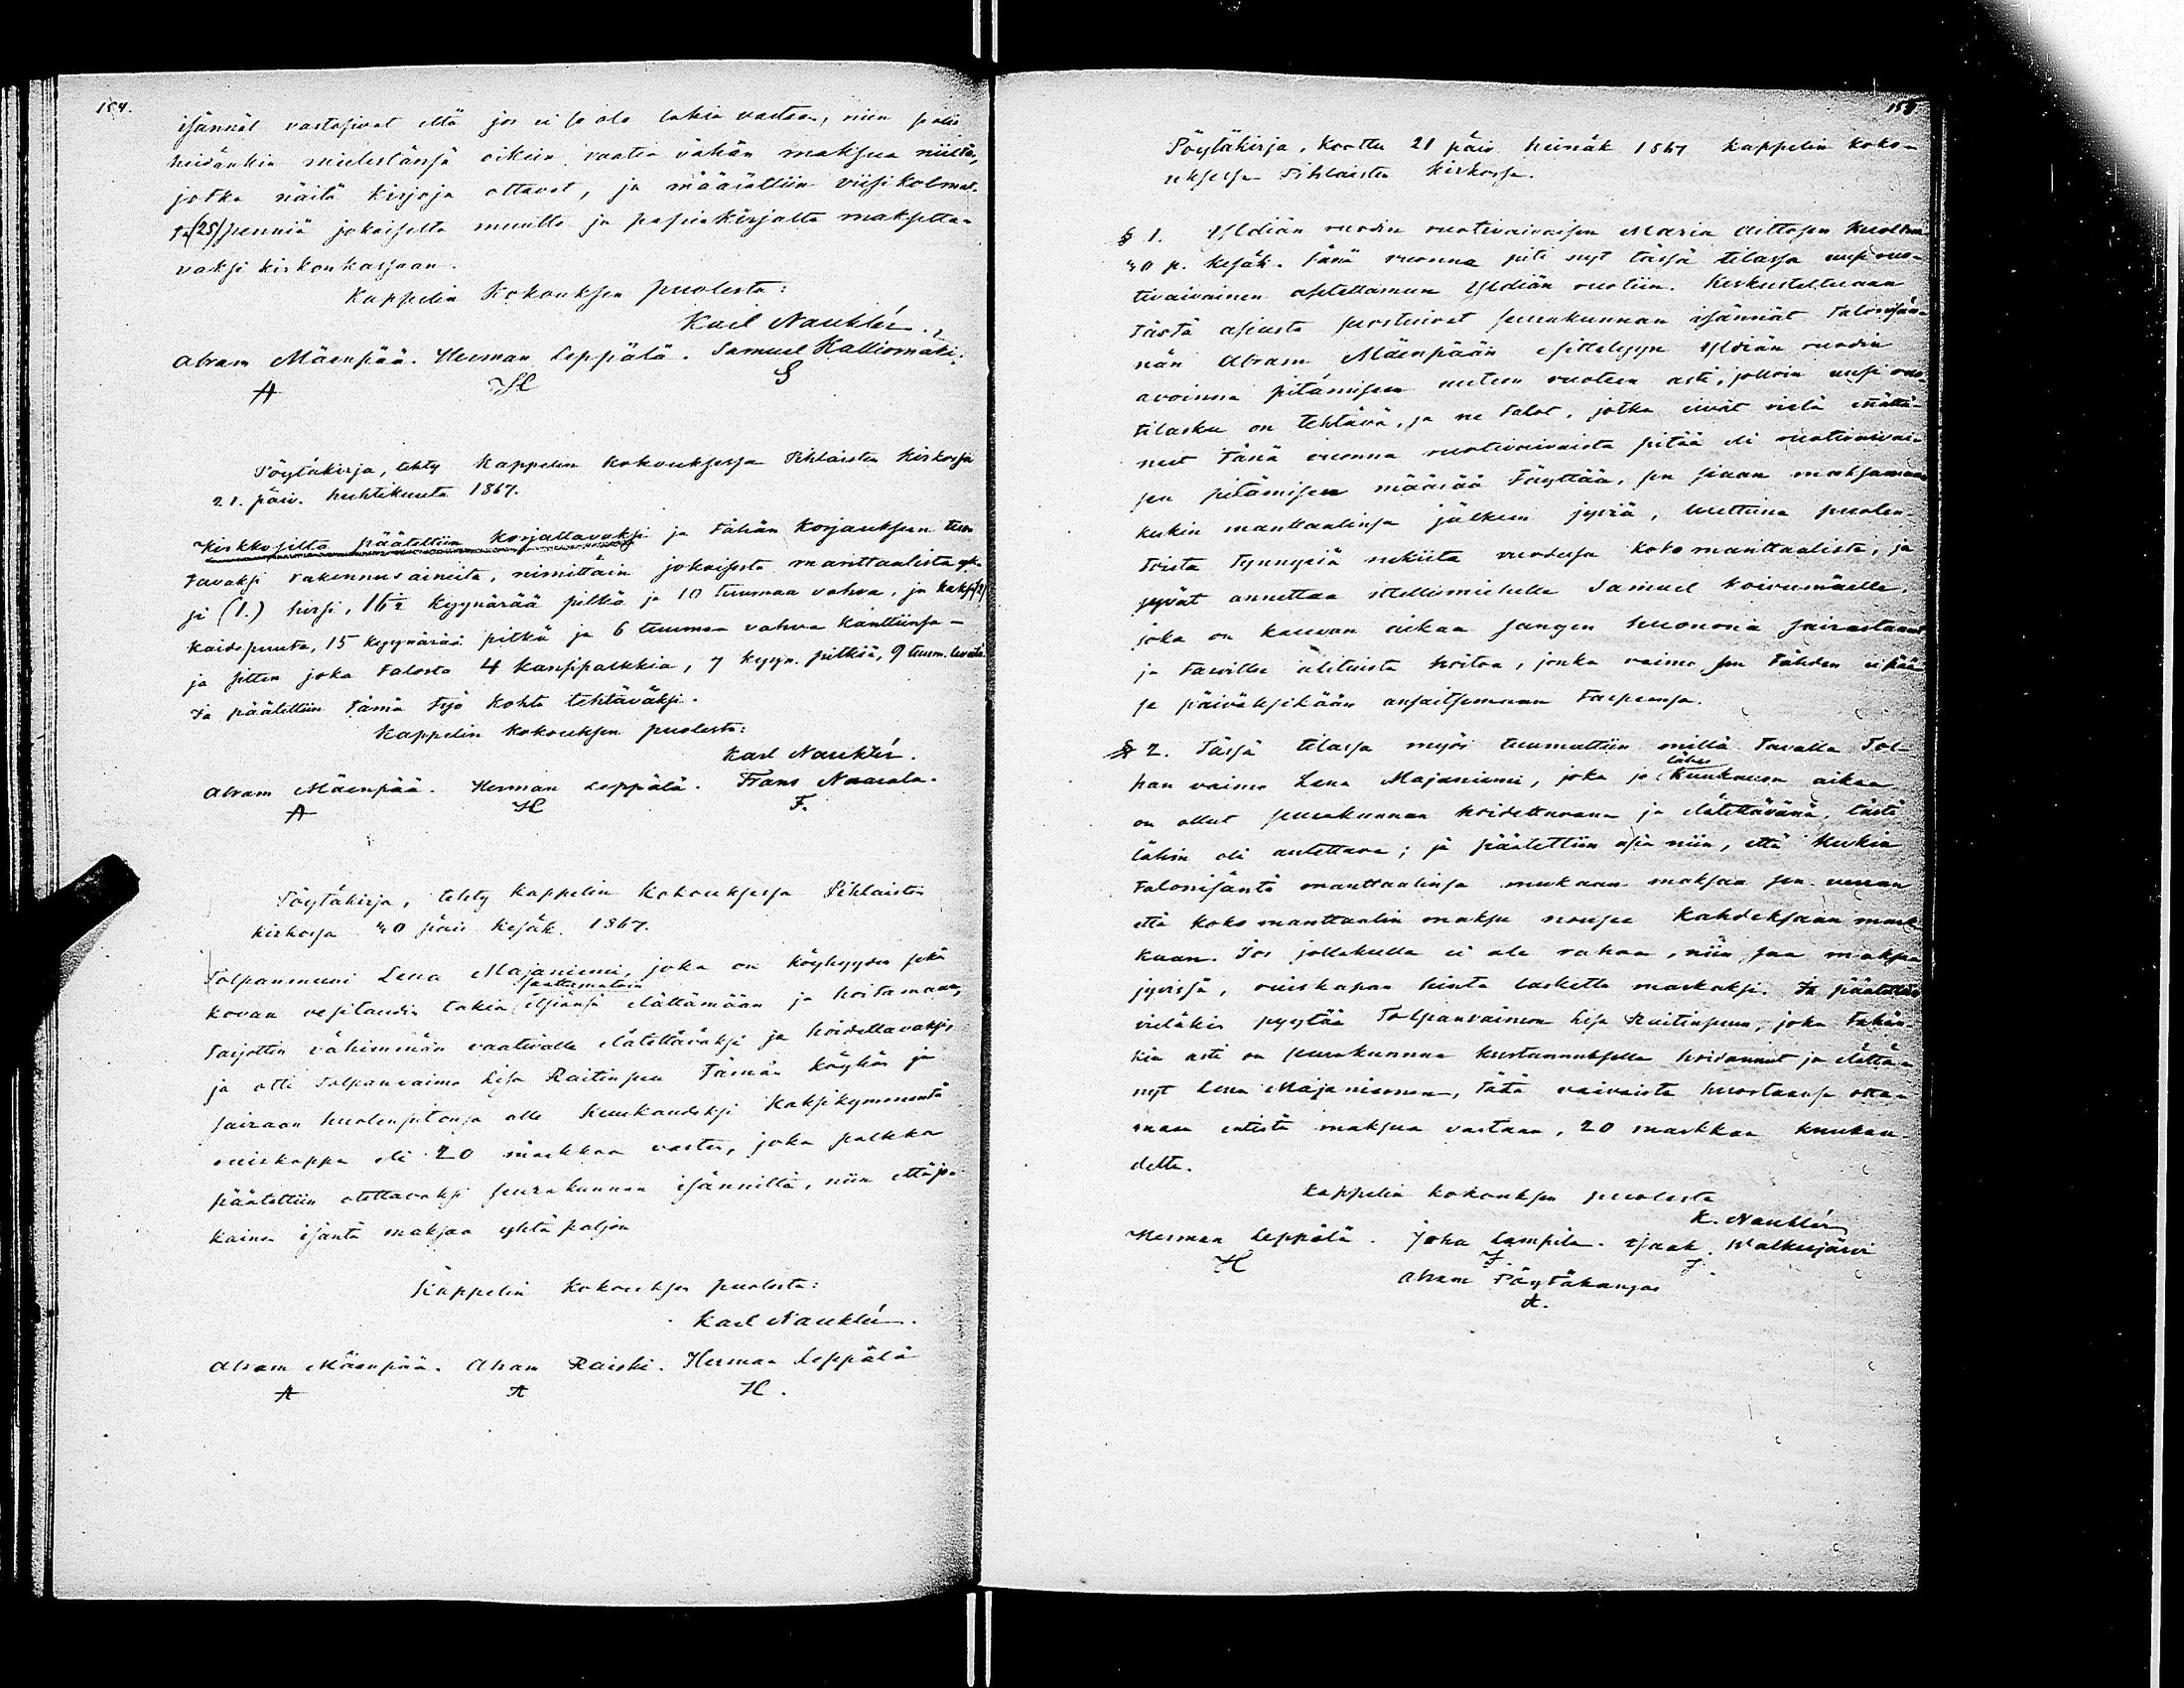 154.
isännät vastasivat että jos ei se ole lakia vastaan, niin se olis
heidänkin mielestänsä oikein vaatia vähän maksua niiltä,
jotka näitä kirjoja ottavat, ja määrättiin viisi kolmat-
ta (25) penniä jokaiselta muulta ja papinkirjalta maksetta-
vaksi kirkonkassaan.
Kappelin Kokouksen puolesta:
Karl Nauklér.
Abram Mäenpää. Herman Leppälä. Samuel Kalliomäki.
A H S
Pöytäkirja, tehty Kappelin kokouksessa Pihlaisten kirkossa
21. päiv. huhtikuuta 1867.
Kirkkosilta päätettiin korjattavaksi ja tähän korjauksen tuo-
tavaksi rakennusaineita, nimittäin jokaisesta manttaalista yk-
si (1.) hirsi, 16½ kyynärää pitkä ja 10 tuumaa vahva, ja kaksi (2)
kaidepuuta, 15 kyynärää pitkä ja 6 tuumaa vahva kanttiinsa -
ja sitten joka talosta 4 kansipalkkia, 7 kyyn. pitkiä, 9 tuum. leveitä.
Ja päätettiin tämä työ kohta tehtäväksi.
Kappelin kokouksen puolesta:
Karl Nauklér.
Abram Mäenpää. Herman Leppälä. Frans Naarala.
A H F.
Pöytäkirja, tehty Kappelin Kokouksessa Pihlaisten
kirkossa 30 päiv. Kesäk. 1867.
Tolpanmuori Lena Majaniemi, joka on köyhyyden sekä
saattamatoin
kovan vesitaudin takia itsiänsä elättämään ja hoitamaan,
tarjottiin vähimmän vaativalle elätettäväksi ja hoidettavaksi,
ja otti Tolpanvaimo Lisa Raitinpuu tämän köyhän ja
sairaan huolenpitonsa alle kuukaudeksi kaksikymmentä
ruiskappa eli 20 markkaa vasten, joka palkka
päätettiin otettavaksi seurakunnan isänniltä, niin että jo-
kainen isäntä maksaa yhtä paljon
Kappelin Kokouksen puolesta:
Karl Nauklér.
Abram Mäenpää. Abram Raiski. Herman Leppälä
A A H.
155.
Pöytäkirja, koottu 21 päiv. heinäk 1867 kappelin koko-
uksessa Pihlaisten kirkossa.
§ 1. Yldiän ruodin ruotivaivaisen Maria Aittosen kuoltua
30 p. kesäk. tänä vuonna piti nyt tässä tilassa uusi ruo-
tivaivainen asetettaman Yldiän ruotiin. Keskusteltuaan
tästä asiasta suostuivat seurakunnan isännät talonisän-
nän Abram Mäenpään esittelyyn Yldiän ruodin
avoinna pitämiseen uuteen vuoteen asti, jolloin uusi ruo-
tilasku on tehtävä, ja ne talot, jotka eivät vielä elättä-
neet tänä vuonna ruotivaivaista pitää eli ruotivaivai-
sen pitämisen määrää täyttää, sen siaan maksamaan
kukin manttaalinsa jälkeen jyviä, luettuna puolen-
toista tynnyriä rukiita vuodessa koko manttaalista, ja
jyvät annettaa itellismiehelle Samuel Koivumäelle,
joka on kauvan aikaa sangen huonona sairastanut
ja tarvitsee alituista hoitoa, jonka vaimo sen tähden ei pää-
se päiväksikään ansaitsemaan tarpeensa.
§ 2. Tässä tilassa myös tuumattiin millä tavalla Tol-
lähes
pan vaimo Lena Majaniemi, joka jo Kuukauen aikaa
on ollut seurakunnan hoidettavana ja elätettävänä, tästä
lähin oli autettava; ja päätettiin asia niin, että kukin
talonisäntä manttaalinsa mukaan maksaa sen verran
että koko manttaalin maksu nousee kahdeksaan mark-
kaan. Jos jollakulla ei ole rahaa, niin saa maksaa
jyvissä, ruiskapan hinta laskettu markaksi. Ja päätettiin
vieläkin pyytää Tolpanvaimon Lisa Raitinpuun, joka tähän-
kin asti on seurakunnan kustannuksella hoitanut ja elättä-
nyt Lena Majaniemen, tätä vaivaista huostaansa otta-
maan entistä maksua vastaan, 20 markkaa kuukau-
delta.
Kappelin kokouksen puolesta
K. Nauklér
Herman Leppälä. Joha Lampila. Isaak Walkeejärvi
H J. I.
Abram Pöytäkangas
A.